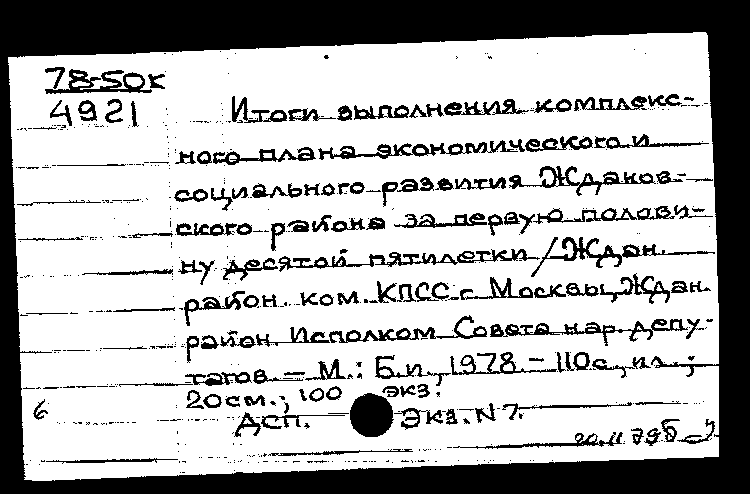 78-50к
4921
Итоги выполнения комплекс-
ного плана экономического и
социального развития Ждановского района за первую полови-
ну десятой пятилетки /Ждан.
район. ком. КПСС г. Москвы, Ждан.
район. Исполком Совета нар. депу-
татов. – М.: Б.и., 1978. – 110с., ил.;
20см.; 100 экз.
6
Дсп. Экз. N 7.
20.11 79